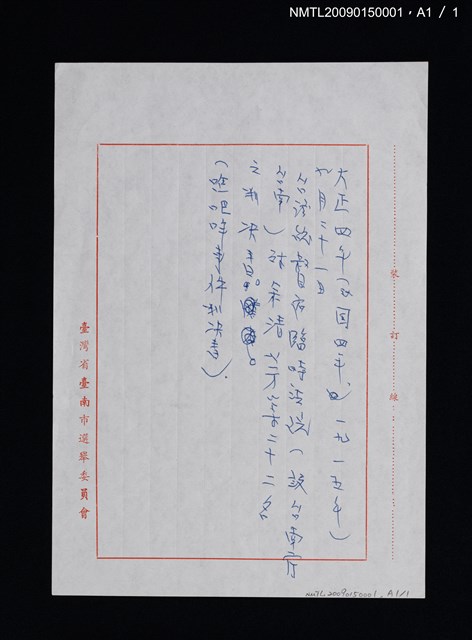 NMTL20090150001，A1 / 1
裝 訂 線
大正四年（民国四年、一九一五年）
九月二十一日
台湾総督府臨時法院（設台南庁
台南）被余清芳等二十二名
之判決書。
（噍吧哖事件判決書）.
臺灣省臺南市選舉委員會
NMTL20090150001，A1/1